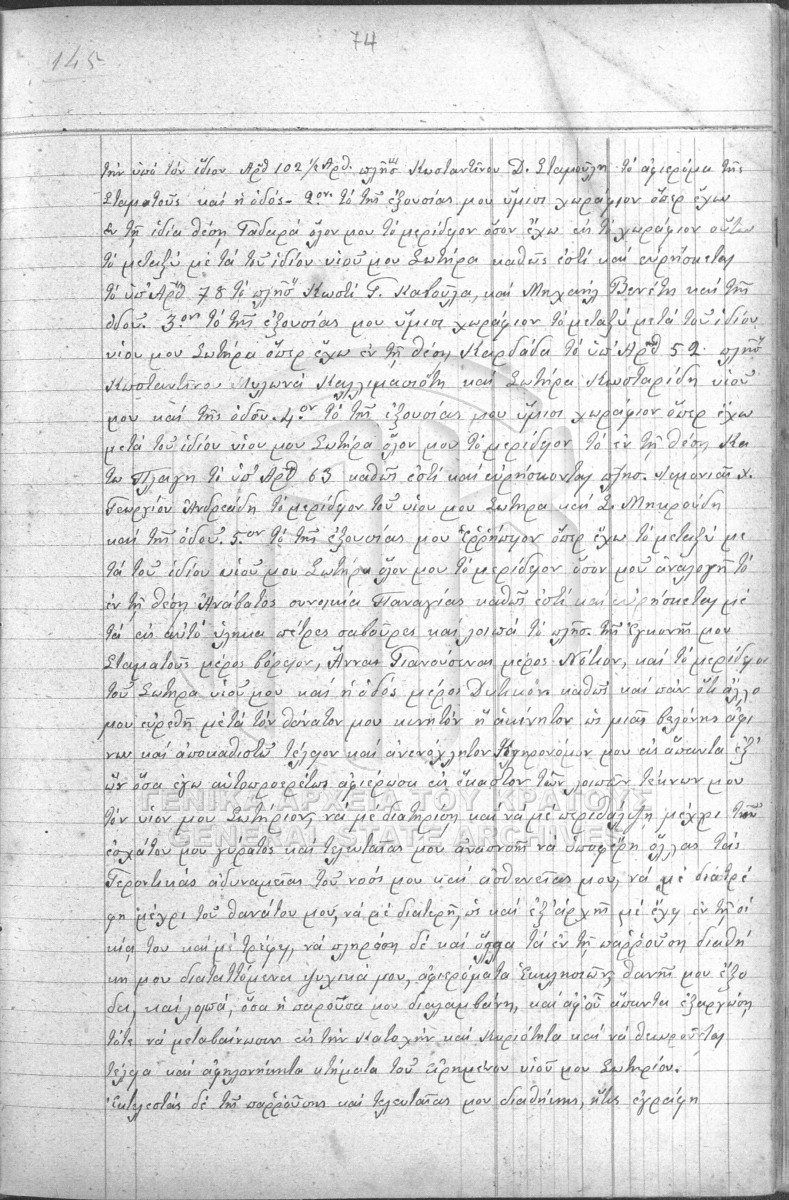 74
145
τὴν ὑπὸ τὸν ἴδιον Ἀρθ 102 1/2 Ἀρθ. πλησ Κωσταντίνου Δ. Σταμούλη τὸ ἀφιερόμα τῆς
Σταματοῦς καὶ ἡ ὁδός - 2ον. τὸ τῆς ἐξουσίας μου ὕμισι χωράφιον ὅπερ ἔχω
ἐν τῇ ἰδία θέσῃ Γαδαρά ὅλον μου τὸ μερίδιον ὅσον ἔχω εἰς τὸ χωράφιον οὕτω
τὸ μεταξὺ μὲ τὰ τοῦ ἰδίου υἱοῦ μου Σωτήρα καθῶς ἐστὶ καὶ εὑρήσκεται
τὸ ὑπ' Ἀρθ 78 τὸ πλησ Κωστῆ Γ. Κατούλα, καὶ Μηχαήλ Βενέτη καὶ τῆς
ὁδοῦ. 3ον τὸ τῆς ἐξουσίας μου ὕμισι χωράφιον τὸ μεταξὺ μετὰ τοῦ ἰδίου
υἱου μου Σωτήρα ὅπερ ἔχω ἐν τῇ θέσῃ Καρδάδα τὸ ὑπ' Ἀρθ 52 πλησ
Κωσταντίνου Μυλωνᾶ Καλλιμασιότη καὶ Σωτήρα Κωσταρίδη υἱοῦ
μου καὶ τῆς ὁδοῦ. 4ον τὸ τῆς ἐξουσίας μου ὕμισι χωράφιον ὅπερ ἔχω
μετὰ τοῦ ἰδίου υἱου μου Σωτήρα ὅλον μου τὸ μερίδιον τὸ ἐν τῇ θέση Κα
τω Πλαγη τὸ ὑπ' Ἀρθ 63 καθῶς ἐστὶ καὶ εὑρήσκονται πλησ. χ.
Γεωργίου Ἀνδρεάδη τὸ μερίδιον τοῦ υἱου μου Σωτηρα καὶ Σ. Μηκρούδη
καὶ τῆς ὁδου. 5ον τὸ τῆς ἐξουσίας μου ἐρρήπιον ὅπερ ἔχω τὸ μεταξὺ με
τὰ τοῦ ἰδίου υἱου μου Σωτήρα ὅλον μου τὸ μερίδιον ὅσον μοῦ ἀναλογῆ τὸ
ἐν τῇ θέσῃ Ἀνάβατος συνοικία Παναγίας καθῶς ἐστὶ καὶ εὑρήσκεται μὲ
τὰ εἰς αὐτὸ ὕληκα πέτρες σαβοῦρες καὶ λοιπά τὸ πλησ. τῆς ἐγκονῆς μου
Σταματοῦς μέρος βόρειον, Ἄννας Γιανούσενας μέρος Νότιον, καὶ τὸ μερίδιον
τοῦ Σωτηρα υἱοῦ μου καὶ ἡ ὁδός μέρος Δυτικόν καθῶς καὶ πᾶν ὅτι ἄλλο
μου εὑρεθῆ μετὰ τὸν θάνατον μου κινητόν ἢ ἀκίνητον ὡς μιᾶς βελόνης ἀφί
νω καὶ ἀποκαθιστῶ τέλειον καὶ ἀνενόχλητον Κληρονόμον μου εἰς ἅπαντα ἐξ'
ὧν ὅσα ἔχω αὐτοπροερέτως ἀφιέρωσα εἰς ἕκαστον τῶν λοιπῶν τέκνων μου
τὸν υἱον μου Σωτήριον, νά με διατηρήσῃ καὶ νά με περιθάλψῃ μέχρι τοῦ
ἐσχάτου μου γύρατος καὶ τελευταίας μου ἀναπνοῆς νὰ ὑποφέρῃ ὅλλας τὰς
Γεροντικὰς ἀδυναμείας τοῦ νοός μου καὶ ἀσθενείας μου, νά μὲ διατρέ
φη μέχρι τοῦ θανάτου μου, νά μὲ διατηρῆ, ὡς καὶ ἐξ' ἀρχῆς μὲ ἔχῃ ἐν τῇ οἰ
κίᾳ του καὶ μὲ τρέφῃ, νὰ πληρόσῃ δὲ καὶ ὅλλα τὰ ἐν τῇ παρρούσῃ διαθή
κη μου διαταττόμενα ψυχικά μου, ἀφιερόματα Ἐκκλησιῶν, θανῆς μου ἔξο
δα, καὶ λοιπά, ὅσα ἡ παροῦσα μου διαλαμβάνη, καὶ ἀφ' οὗ ἅπαντα ἐξαργώσῃ
τότε νὰ μεταβαίνωσιν εἰς τὴν Κατοχήν καὶ Κυριότητα καὶ νὰ θεωροῦνται
τέλεια καὶ ἀφιλονήκητα κτήματα τοῦ εἰρημένου υἱοῦ μου Σωτηρίου.
Ἐκτελεστάς δὲ τῆς παρρούσης καὶ τελευταίας μου διαθήκης, ἥτις ἐγράφη
ΓΕΝΙΚΑ ΑΡΧΕΙΑ ΤΟΥ ΚΡΑΤΟΥΣ
GENERAL STATE ARCHIVES